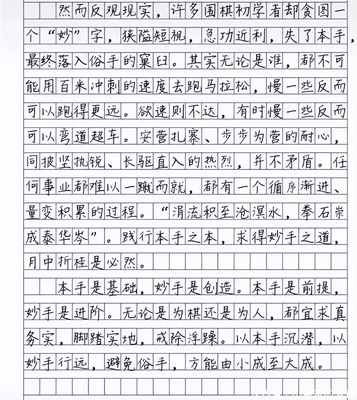 然而反观现实，许多围棋初学者却贪图一
个“妙”字，狭隘短视，急功近利，失了本手，
最终落入俗手的窠臼。其实无论是谁，都不可
能用百米冲刺的速度去跑马拉松，慢一些反而
可以跑得更远。欲速则不达，有时慢一些反而
可以弯道超车。安营扎寨、步步为营的耐心，
同披坚执锐、长驱直入的热烈，并不矛盾。任
何事业都难以一蹴而就，都有一个循序渐进、
量变积累的过程。“涓流积至沧溟水，拳石崇
成泰华岑”。践行本手之本，求得妙手之道，
月中折桂是必然。
本手是基础，妙手是创造。本手是前提，
妙手是进阶。无论是为棋还是为人，都宜求真
务实，脚踏实地，戒除浮躁。以本手沉潜，以
妙手行远，避免俗手，方能由小成至大成。